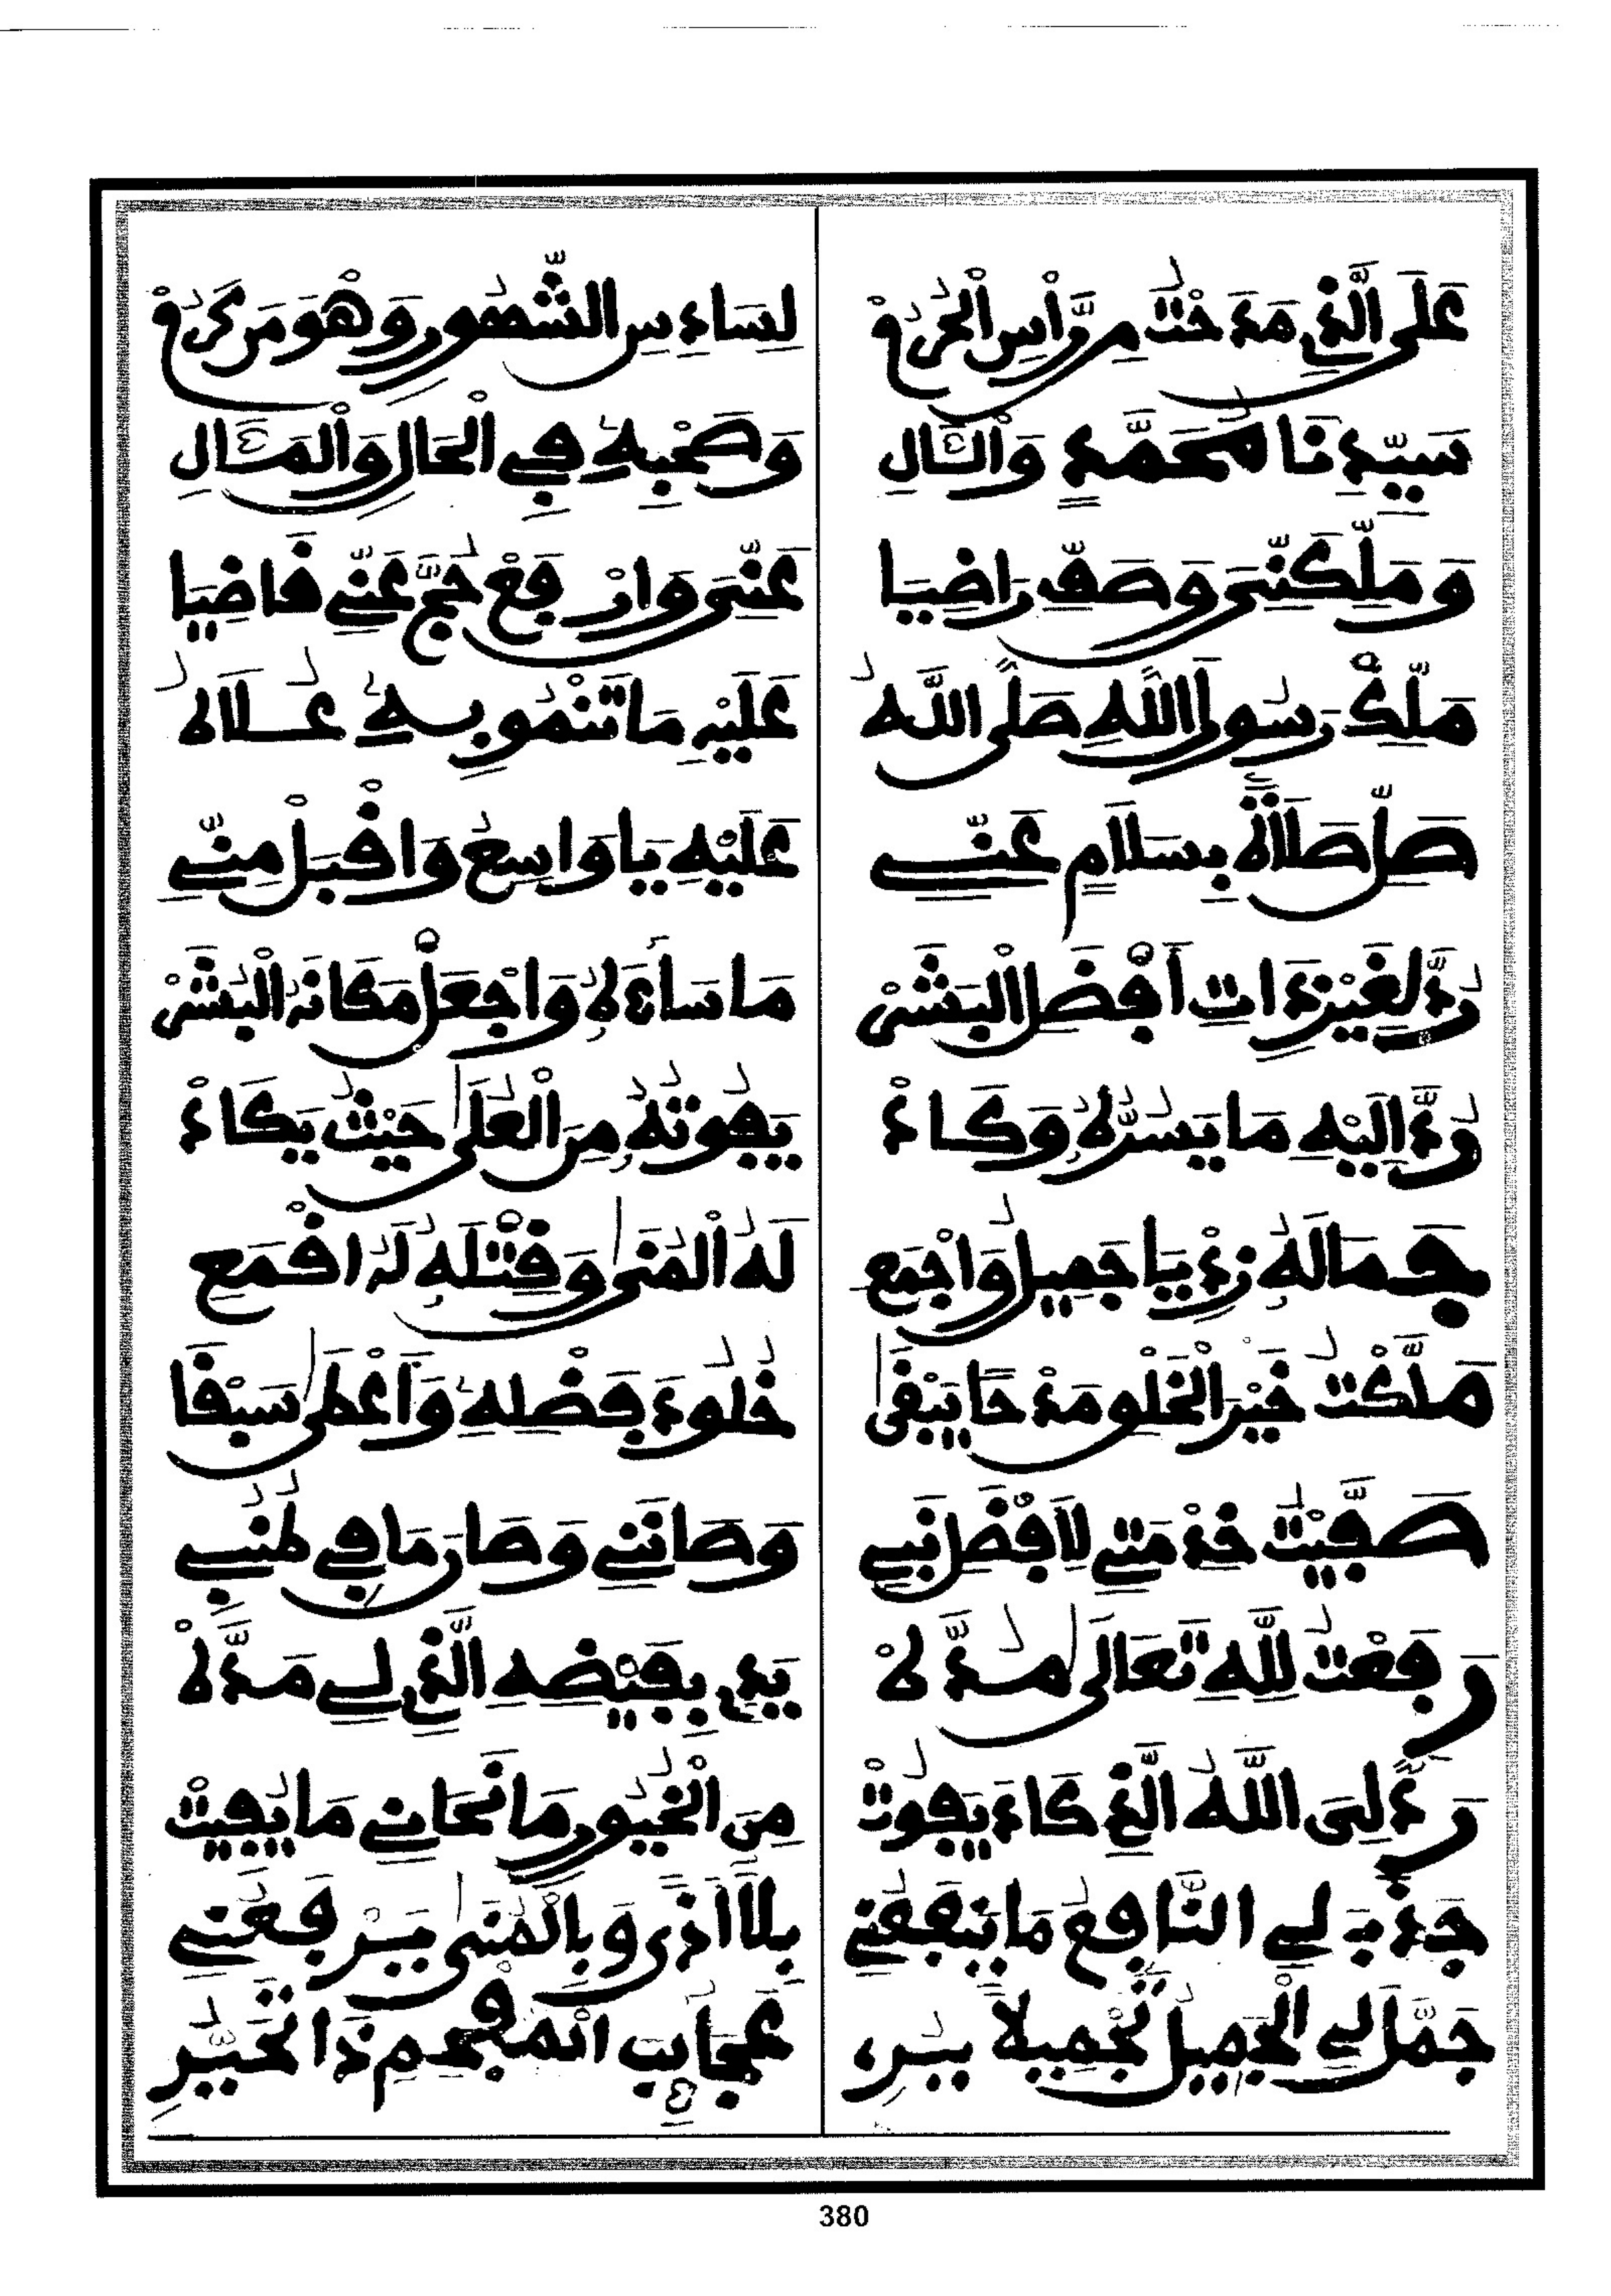 عَلَى الَّذِي مَدَحْتُ مِن رَّأْسِ لِسَادِسِ الشُّهُورِ وَهْوَ
سَيِّدِنَا مُحَمَّدٍ وَالْآلِ وَصَحْبِهِ فِي الْحَالِ وَالْمَآلِ
وَمَلِّكَنِّي وَصَفِّ رَاضِيَا عَنِّي وَارْفَعْ عَنِّي قَاضِيَا
مَلِّكْ رَسُولَ اللَّهِ صَلَّى اللَّهُ عَلَيْهِ مَا تَنْمُو بِهِ عُلَاهُ
صَلِّ صَلَاةً بِسَلَامٍ عَنِّي عَلَيْهِ يَا وَاسِعُ وَاقْبَلْ مِنِّي
رُدَّ لِغَيْرِ ذَاتِ أَفْضَلِ الْبَشَرْ مَا سَاءَهُ وَاجْعَلْ مَكَانَهُ الْبُشَرْ
رُدَّ إِلَيْهِ مَا يَسُرُّهُ وَكَادْ يَفُوتُهُ مِنَ الْعُلَى حَيْثُ يُكَادْ
جَمَالَهُ زِدْ يَا جَمِيلُ وَاجْمَعِ لَهُ الْمُنَى لَهُ اقْمَعِ
مَلَّكْتُ خَيْرَ الْخَلْقِ مَدْحًا يَبْقَى خُلُودَ فَضْلِهِ وَأَعْطَى سَبْقَا
صَفَّيْتُ خِدْمَتِي لِأَفْضَلِ نَبِي وَصَانَنِي وَصَارَ مَا فِي طُنُبِي
رَفَعْتُ لِلَّهِ تَعَالَى مُدَّ لَهْ يَدِي بِفَيْضِهِ الَّذِي لِي مَدَّ لَهْ
رَدَّ لِيَ اللَّهُ الَّذِي كَادَ يَفُوتْ مِنَ الْخُيُورِ مَا نَحَانِي مَا يُفِيتْ
جَذَبَ لِي النَّافِعُ مَا يَنْفَعُنِي بِلَا أَذًى وَبِالْمُنَى يَرْفَعُنِي
جَمَّلَ لِي الْجَمِيلُ تَجْمِيلًا عَجَائِبَ ذَا تَحَيُّرِ
380